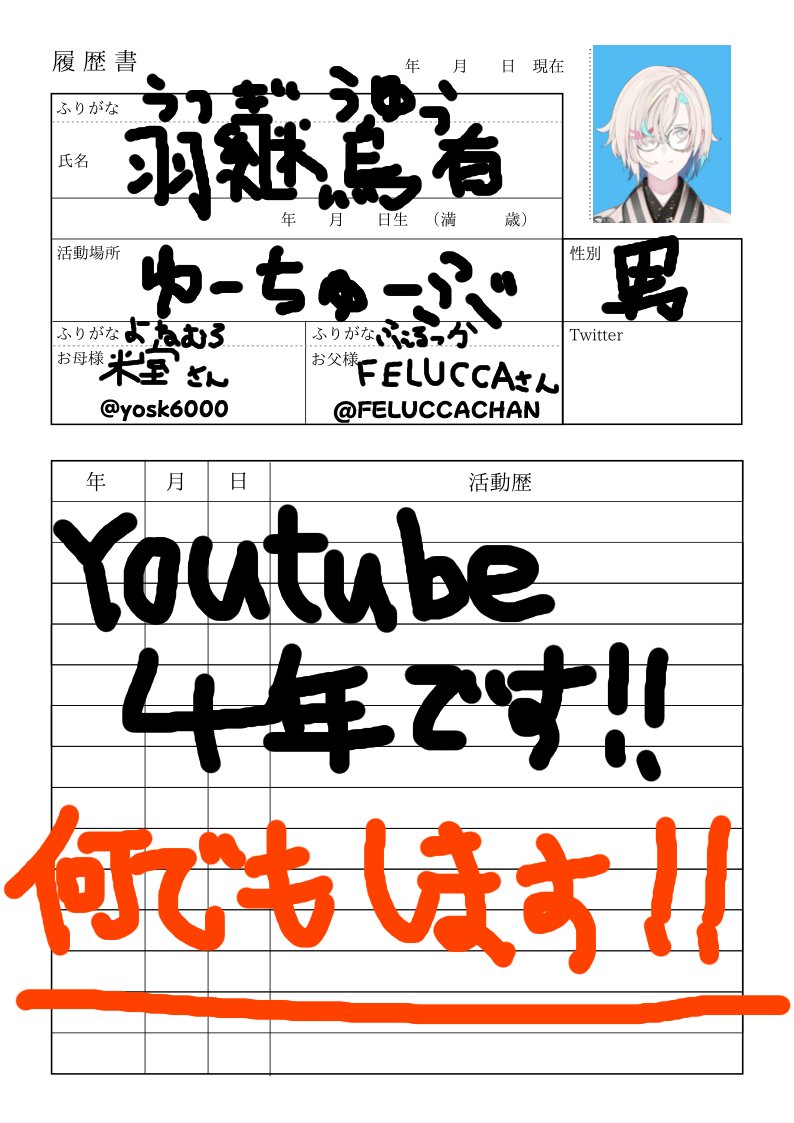 履歴書
年 月 日 現在
ふりがな うつぎ うゆう
氏名 羽継烏有
年 月 日生 (満 歳)
活動場所 ゆーちゅーぶ
性別 男
ふりがな よねむろ
お母様 米室さん
@yosk6000
ふりがな ふぇるっか
お父様 FELUCCAさん
@FELUCCACHAN
Twitter
年 月 日 活動歴
Youtube
4年です!!
何でもします!!